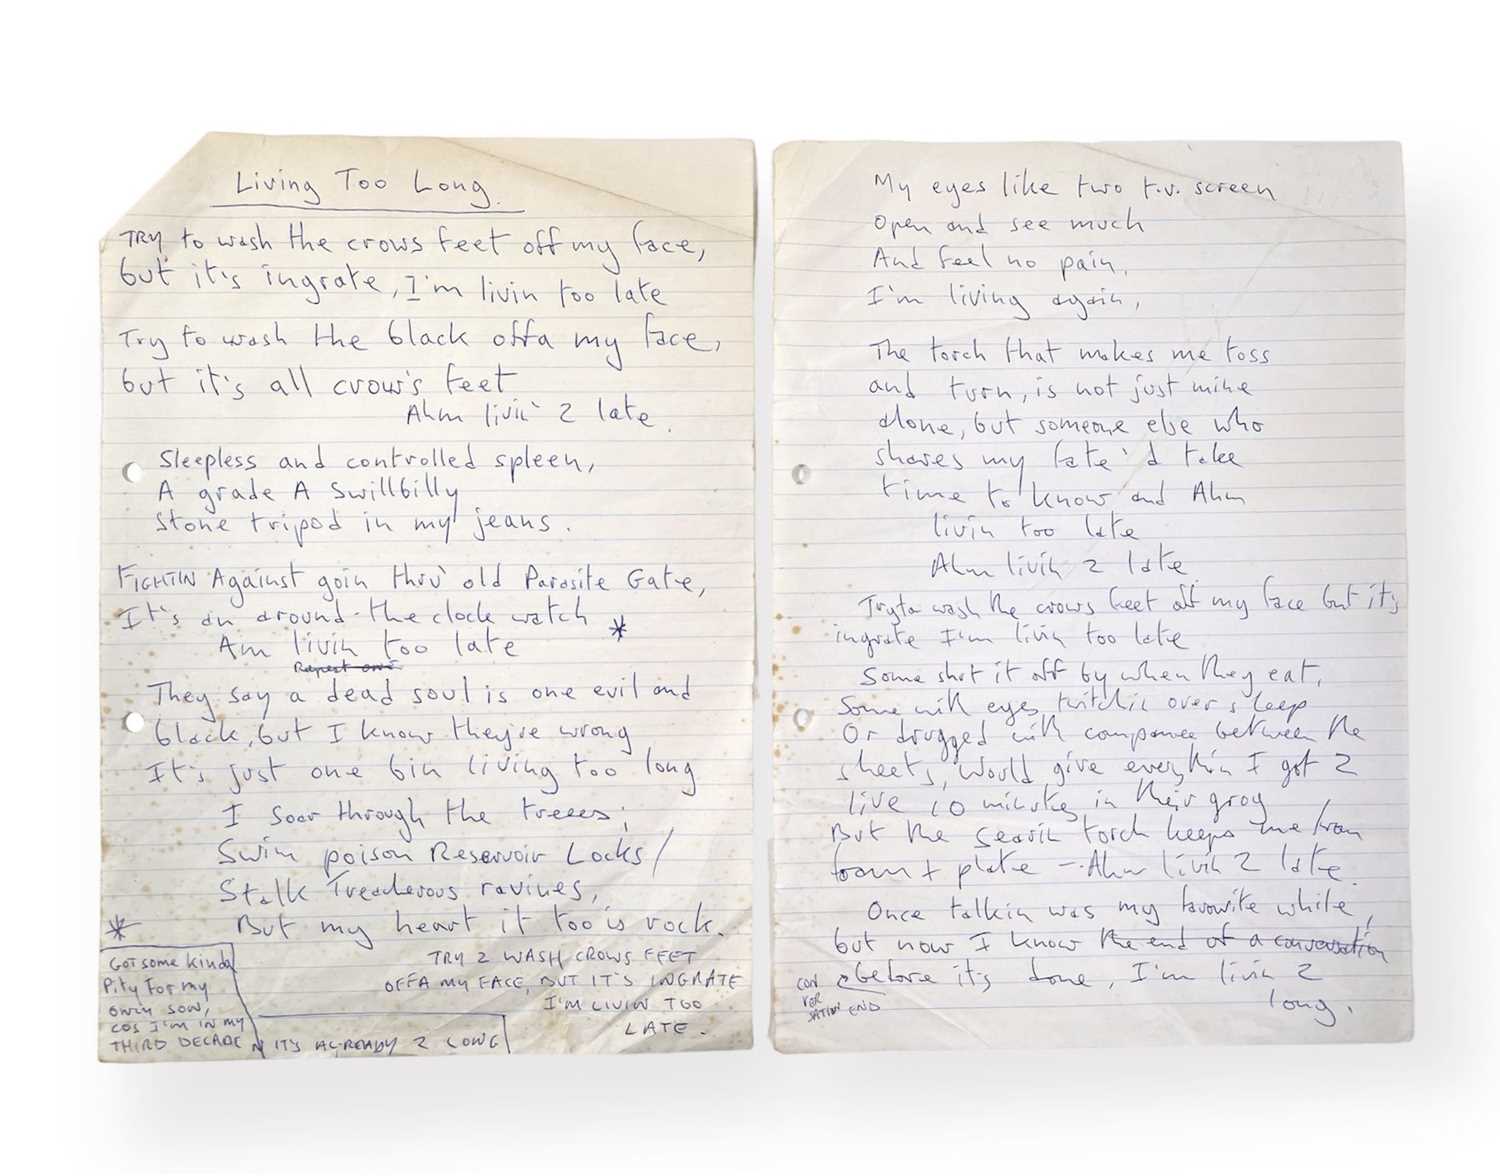 Living Too Long.
TRY to wash the crows feet off my face,
but it's ingrate, I'm livin too late
Try to wash the black offa my face,
but it's all crow's feet
Ahm livin' 2 late.
Sleepless and controlled spleen,
A grade A Swillbilly
Stone tripod in my jeans.
FIGHTIN Against goin thru' old Parasite Gate,
It's an around-the clock watch
Am livin too late *
They say a dead soul is one evil and
black, but I know they're wrong
It's just one bin living too long
I soar through the treees;
Swim poison Reservoir Locks/
Stalk Treacherous ravines,
But my heart it too is rock.
*
GOT some kinda
Pity For my
own son,
COS I'M IN MY
THIRD DECADE N ITS ALREADY 2 LONG
TRY 2 WASH CROWS FEET
OFFA MY FACE, BUT IT'S INGRATE
I'M LIVIN TOO
LATE.
My eyes like two t.v. screen
Open and see much
And feel no pain,
I'm living again,
The torch that makes me toss
and turn, is not just mine
alone, but someone else who
shares my fate 'd take
time to know and Ahm
livin too late
Ahm livin 2 late
Tryta wash the crows feet off my face but it's
ingrate I'm livin too late
Some shut it off by when they eat,
Some with eyes twitchin over sleep
Or drugged with companee between the
sheets, would give everythin I got 2
live 10 minutes in their grog
But the searin torch keeps me from
foam + plate - Ahm livin 2 late.
Once talkin was my favourite white,
but now I know the end of a conversation
before it's done, I'm livin 2
long.
CON
VER
SATION END